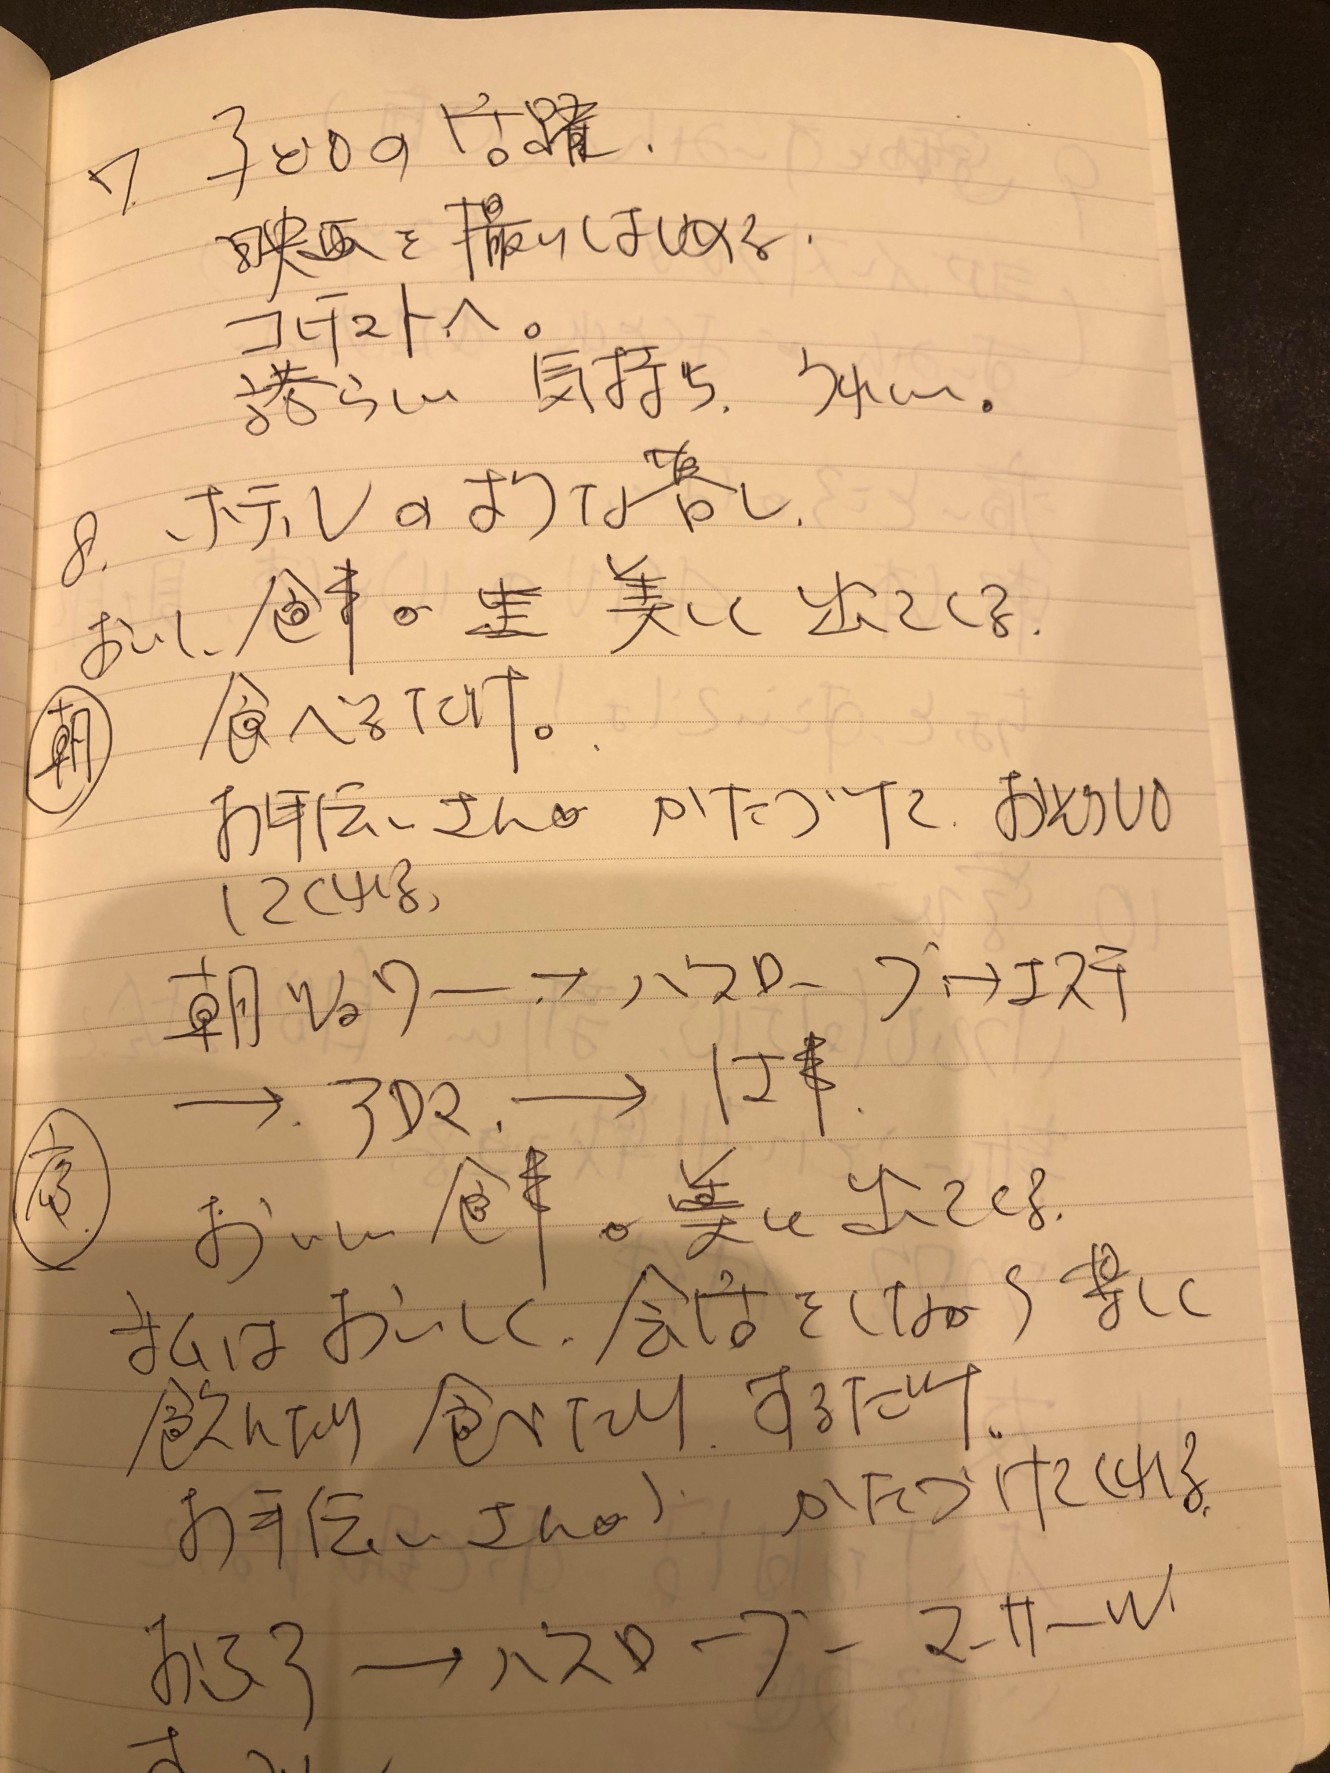 7. 子どもの活躍.
映画を撮りはじめる.
コンテストへ。
誇らしい 気持ち. うれしい。
8. ホテルのような暮し.
おいしい食事が 美しく 出てくる.
朝 食べるだけ。
お手伝いさんが かたづけて. おそうじも
してくれる,
朝 シャワー → バスローブ → エステ
→ → 仕事.
夜 おいしい 食事が 美しく 出てくる.
私は おいしく. 会話をしながら 楽しく
飲んだり 食べたり. するだけ.
お手伝いさんが かたづけてくれる.
おふろ → バスローブ - マッサージ